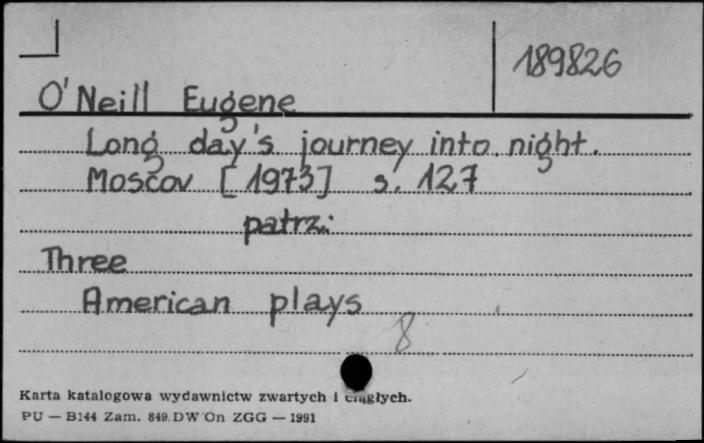 189826
O'Neill Eugene
Long day's journey into night.
Moscov [1973] s. 127
patrz:
Three
American plays
8
Karta katalogowa wydawnictw zwartych i ciągłych.
PU — B144 Zam. 849. DW On ZGG — 1991